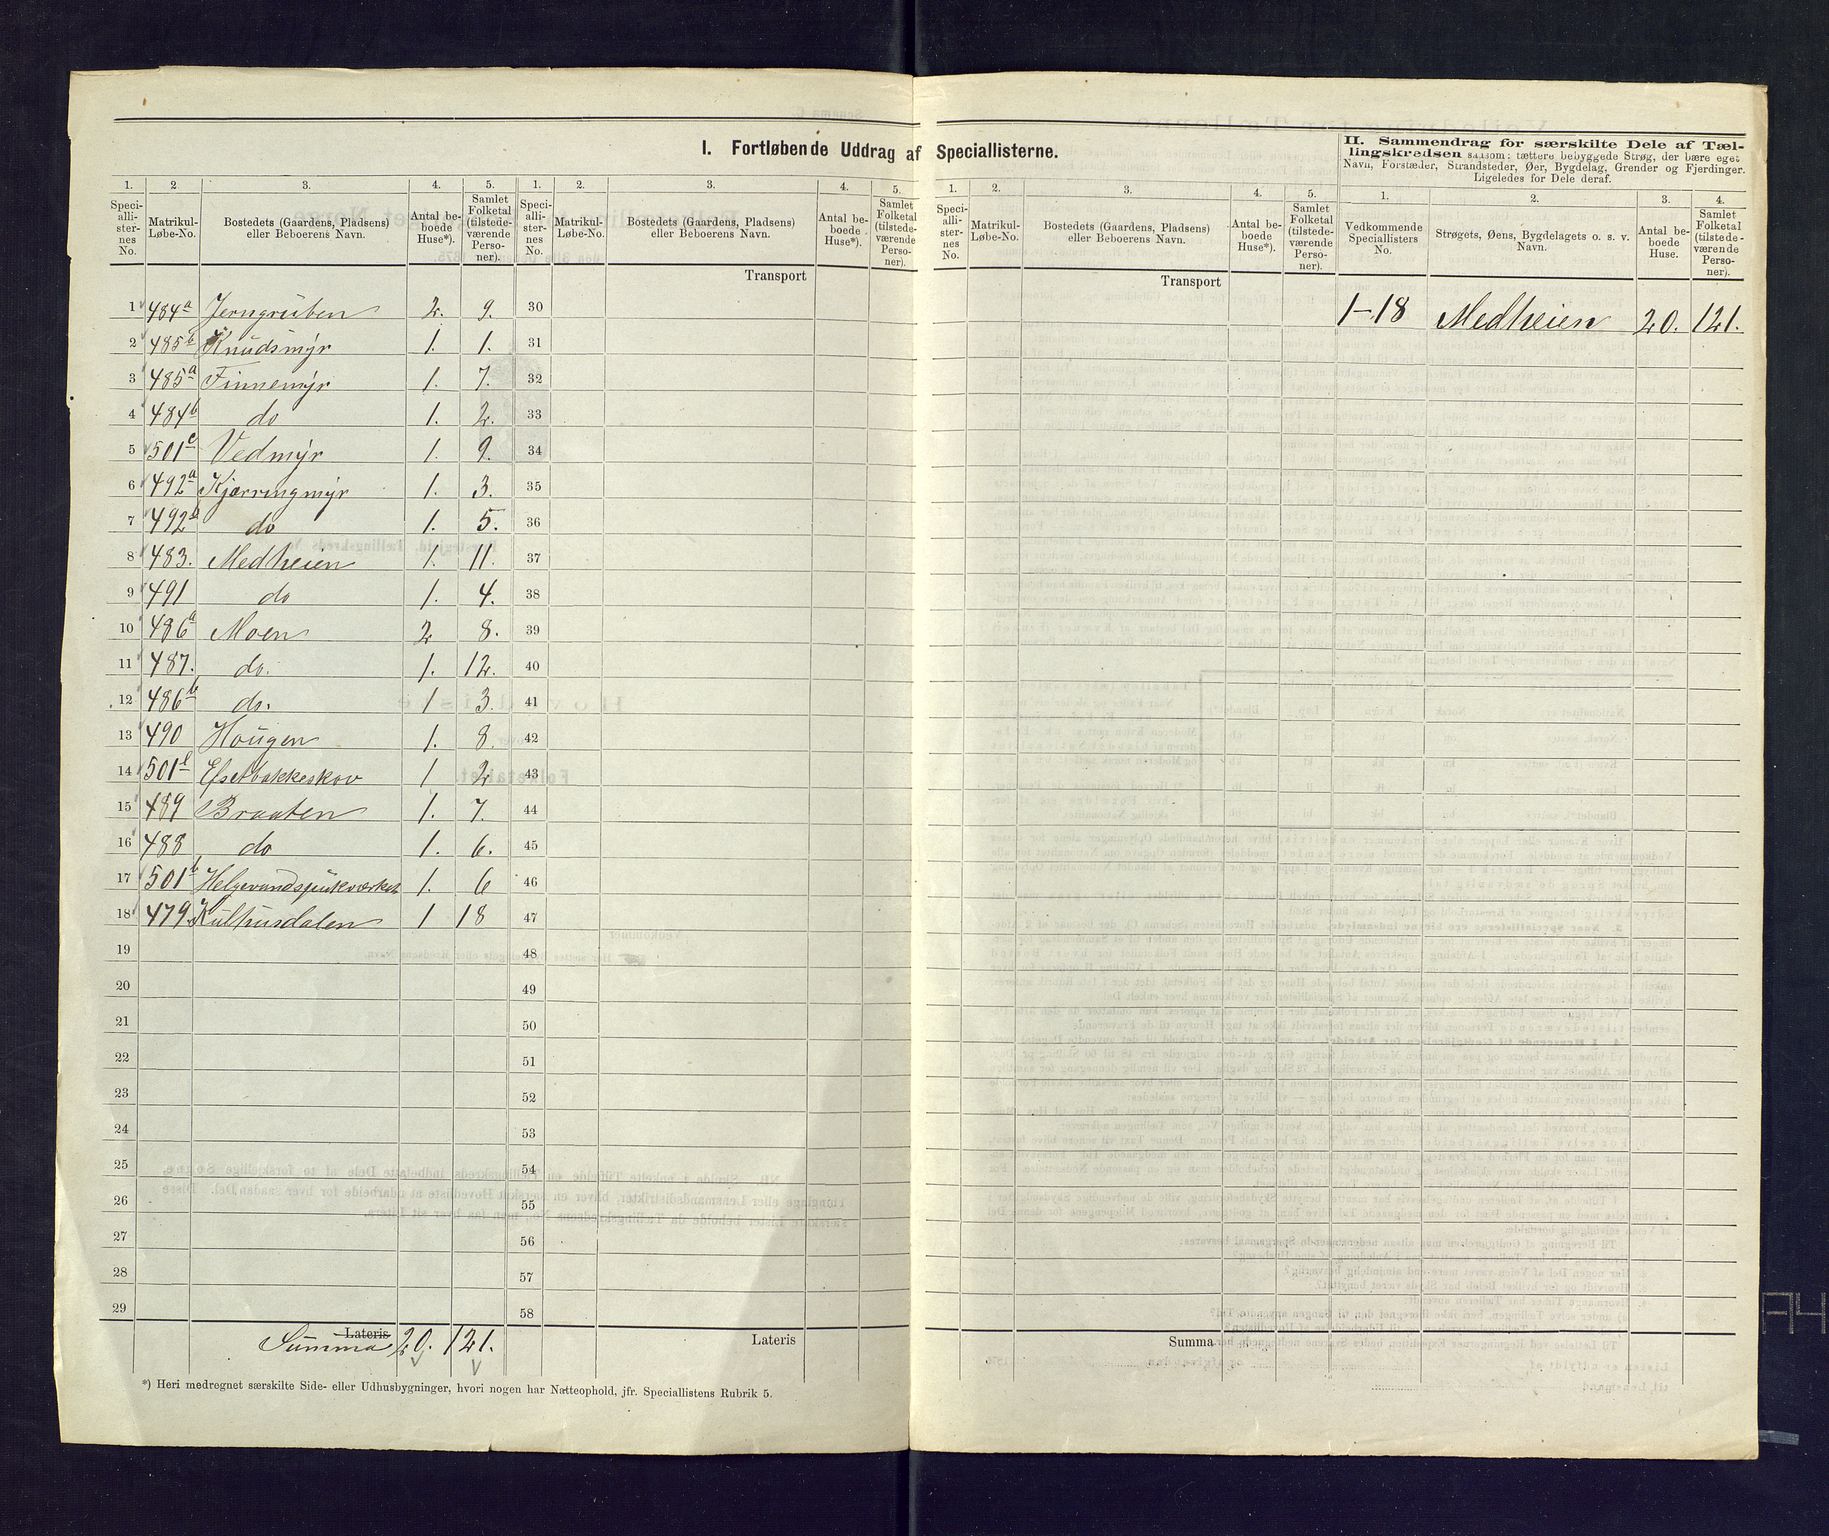 I. Fortløbende Uddrag af Speciallisterne.
II. Sammendrag for særskilte Dele af Tæl-
lingskredsen saasom: tættere bebyggede Strøg, der bære eget
Navn, Forstæder, Strandsteder, Øer, Bygdelag, Grender og Fjerdinger.
Ligeledes for Dele deraf.
1. 2. 3. 4. 5. 1. 2. 3. 4. 5.
Speci-alli-ster-nes No. Matrikul-Løbe-No. Bostedets (Gaardens, Pladsens) eller Beboerens Navn. Antal be-boede Huse*). Samlet Folketal (tilstede-værende Perso-ner).
Speci-alli-ster-nes No. Matrikul-Løbe-No. Bostedets (Gaardens, Pladsens) eller Beboerens Navn. Antal be-boede Huse*). Samlet Folketal (tilstede-værende Perso-ner).
Transport
1 484a Jerngruben 2. 9. 30
2 485b Knudsmyr 1. 1. 31
3 485a Finnemyr 1. 7. 32
4 484b do 1. 2. 33
5 501c Vedmyr 1. 9. 34
6 492a Kjærringmyr 1. 3. 35
7 492 do 1. 5. 36
8 483. Medheien 1. 11. 37
9 491 do 1. 4. 38
10 486a Moen 2 8. 39
11 487. do. 1. 12. 40
12 486b do. 1 3. 41
13 490 Hougen 1. 8. 42
14 501 Efsetbakkeskov 1 2 43
15 489 Braaten 1. 7. 44
16 488 do 1. 6. 45
17 501b Helgevandspukværket 1. 6 46
18 479. Kulhusdalen 1 18 47
19 48
20 49
21 50
22 51
23 52
24 53
25 54
26 55
27 56
28 57
29 58
Lateris Summa 20. 121.
Lateris
*) Heri medregnet særskilte Side- eller Udhusbygninger, hvori nogen har Natteophold, jfr. Speciallistens Rubrik 5.
1. 2. 3. 4. 5. 1. 2. 3. 4.
Speci-alli-ster-nes No. Matrikul-Løbe-No. Bostedets (Gaardens, Pladsens) eller Beboerens Navn. Antal be-boede Huse*). Samlet Folketal (tilstede-værende Perso-ner).
Vedkommende Speciallisters No. Strøgets, Øens, Bygdelagets o. s. v. Navn. Antal be-boede Huse. Samlet Folketal (tilstede-værende Perso-ner).
Transport
1-18 Medheien 20. 121.
Summa